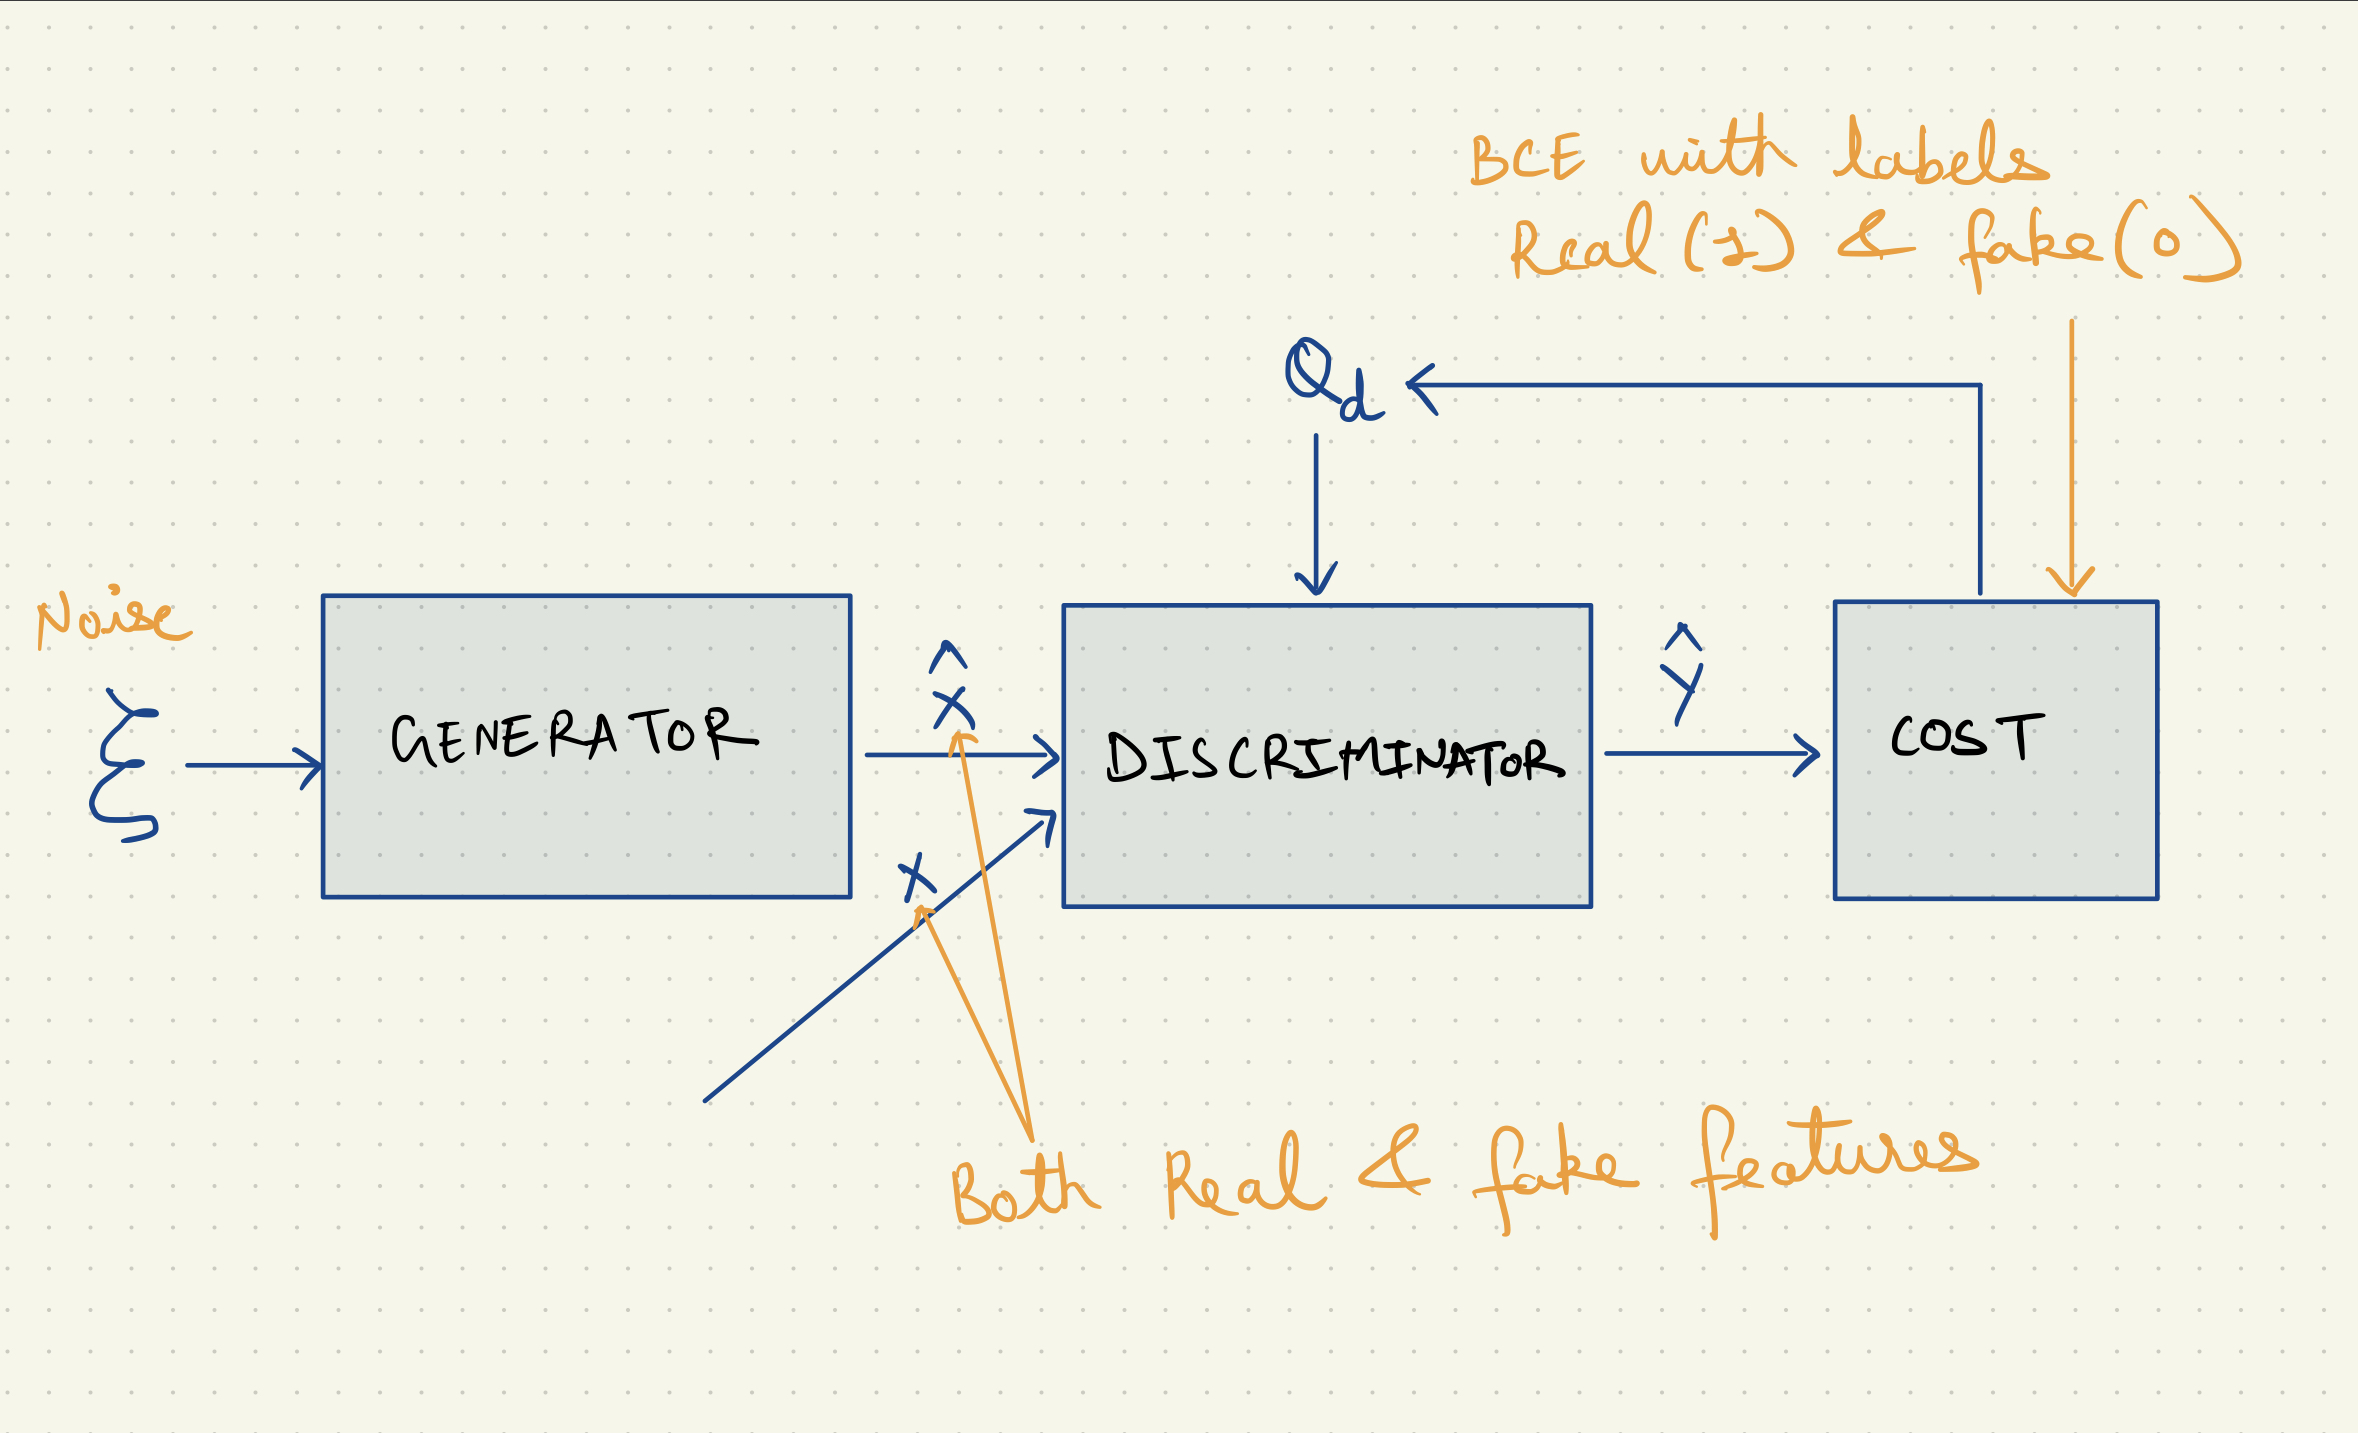 BCE with labels
Real (1) & fake (0)
Qd
Noise
ξ
GENERATOR
X̂
DISCRIMINATOR
Ŷ
COST
X
Both Real & fake features